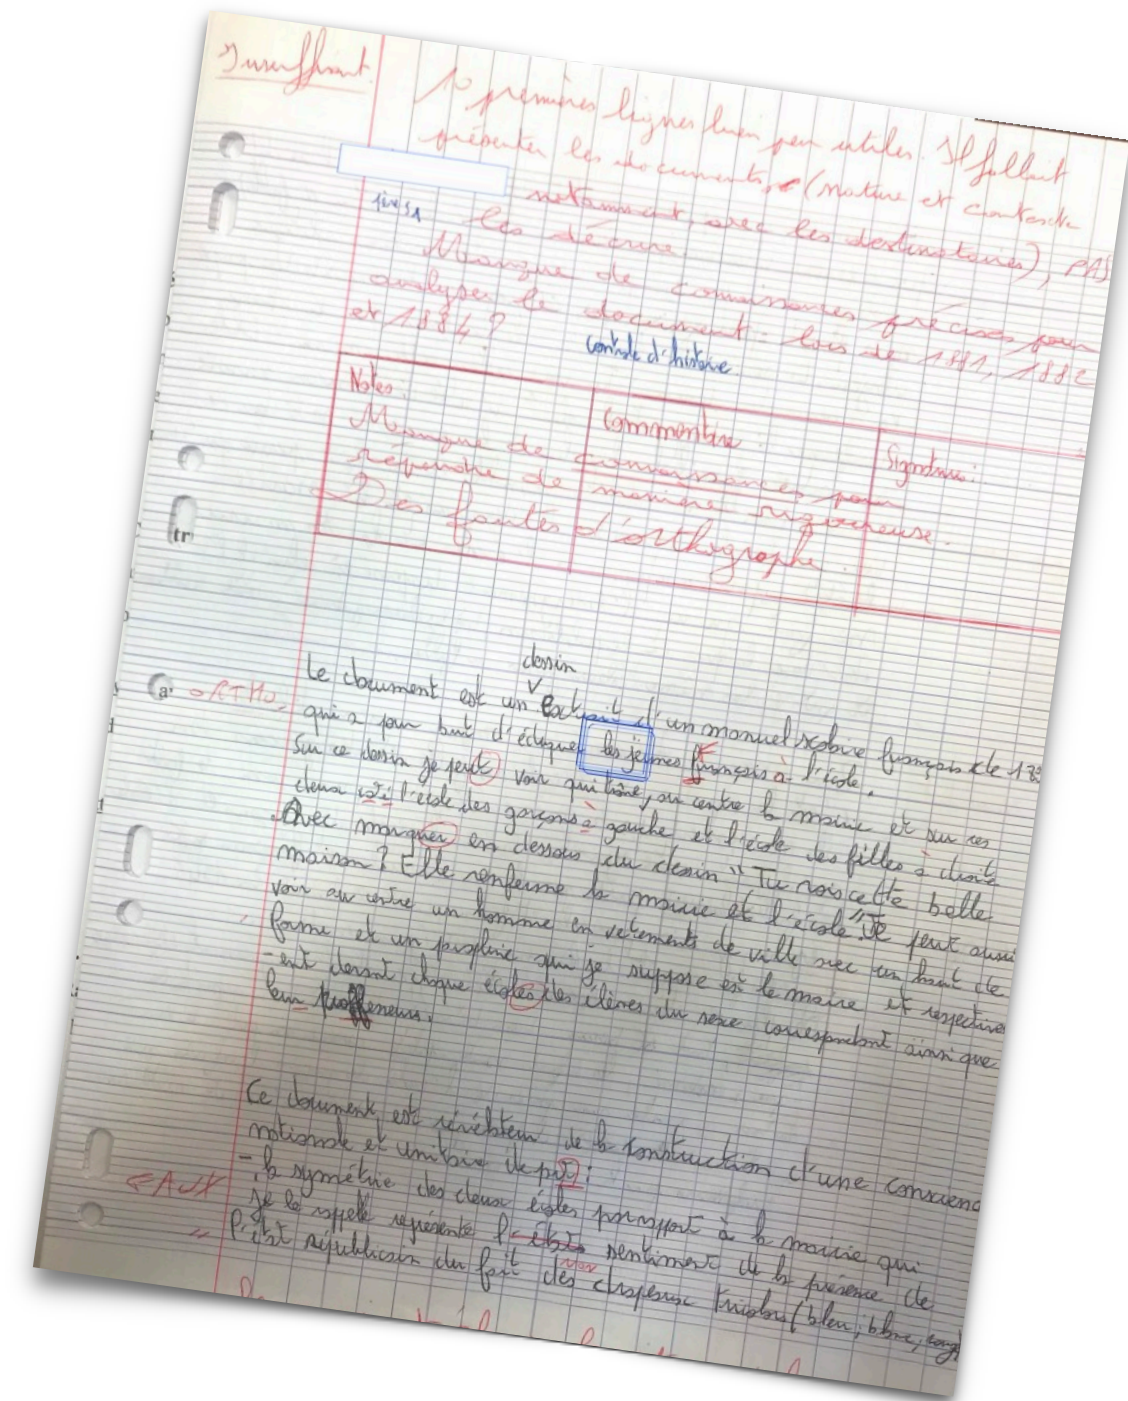 Insuffisant.
10 premières lignes bien peu utiles. Il fallait
présenter les documents, (nature et contexte
notamment, avec les destinataires), PAS
1ère S1
les décrire
Manque de connaissances précises pour
analyser le document : lois de 1881, 1882
et 1884 ?
contrôle d'histoire
Notes.
Commentaire.
Signature:
Manque de connaissances pour
répondre de manière rigoureuse.
Des fautes d'orthographe
dessin
Le document est un extrait d'un manuel scolaire français de
a. ORTHO.
qui a pour but d'éduquer les jeunes français à l'école.
Sur ce dessin je peut voir qui trône, au centre la mairie et sur ces
deux l'école des garçons a gauche et l'école des filles à droite
Avec marquer en dessous du dessin "Tu vois cette belle
maison ? Elle renferme la mairie et l'école". Je peut aussi
voir au centre un homme en vetements de ville avec un haut de
forme et un qui je suppose est le maire et respective
-ent devant chaque écoles des élèves du sexe correspondant ainsi que
leur professeurs.
Ce document est révélateur de la construction d'une conscienc
nationale et unitaire de par :
- la symétrie des deux écoles par rapport à la mairie qui
FAUX
je le rappelle représente l' sentiment de la présence de
l'état républicain du fait des chapeaux tricolors (bleu, blanc, rouge)